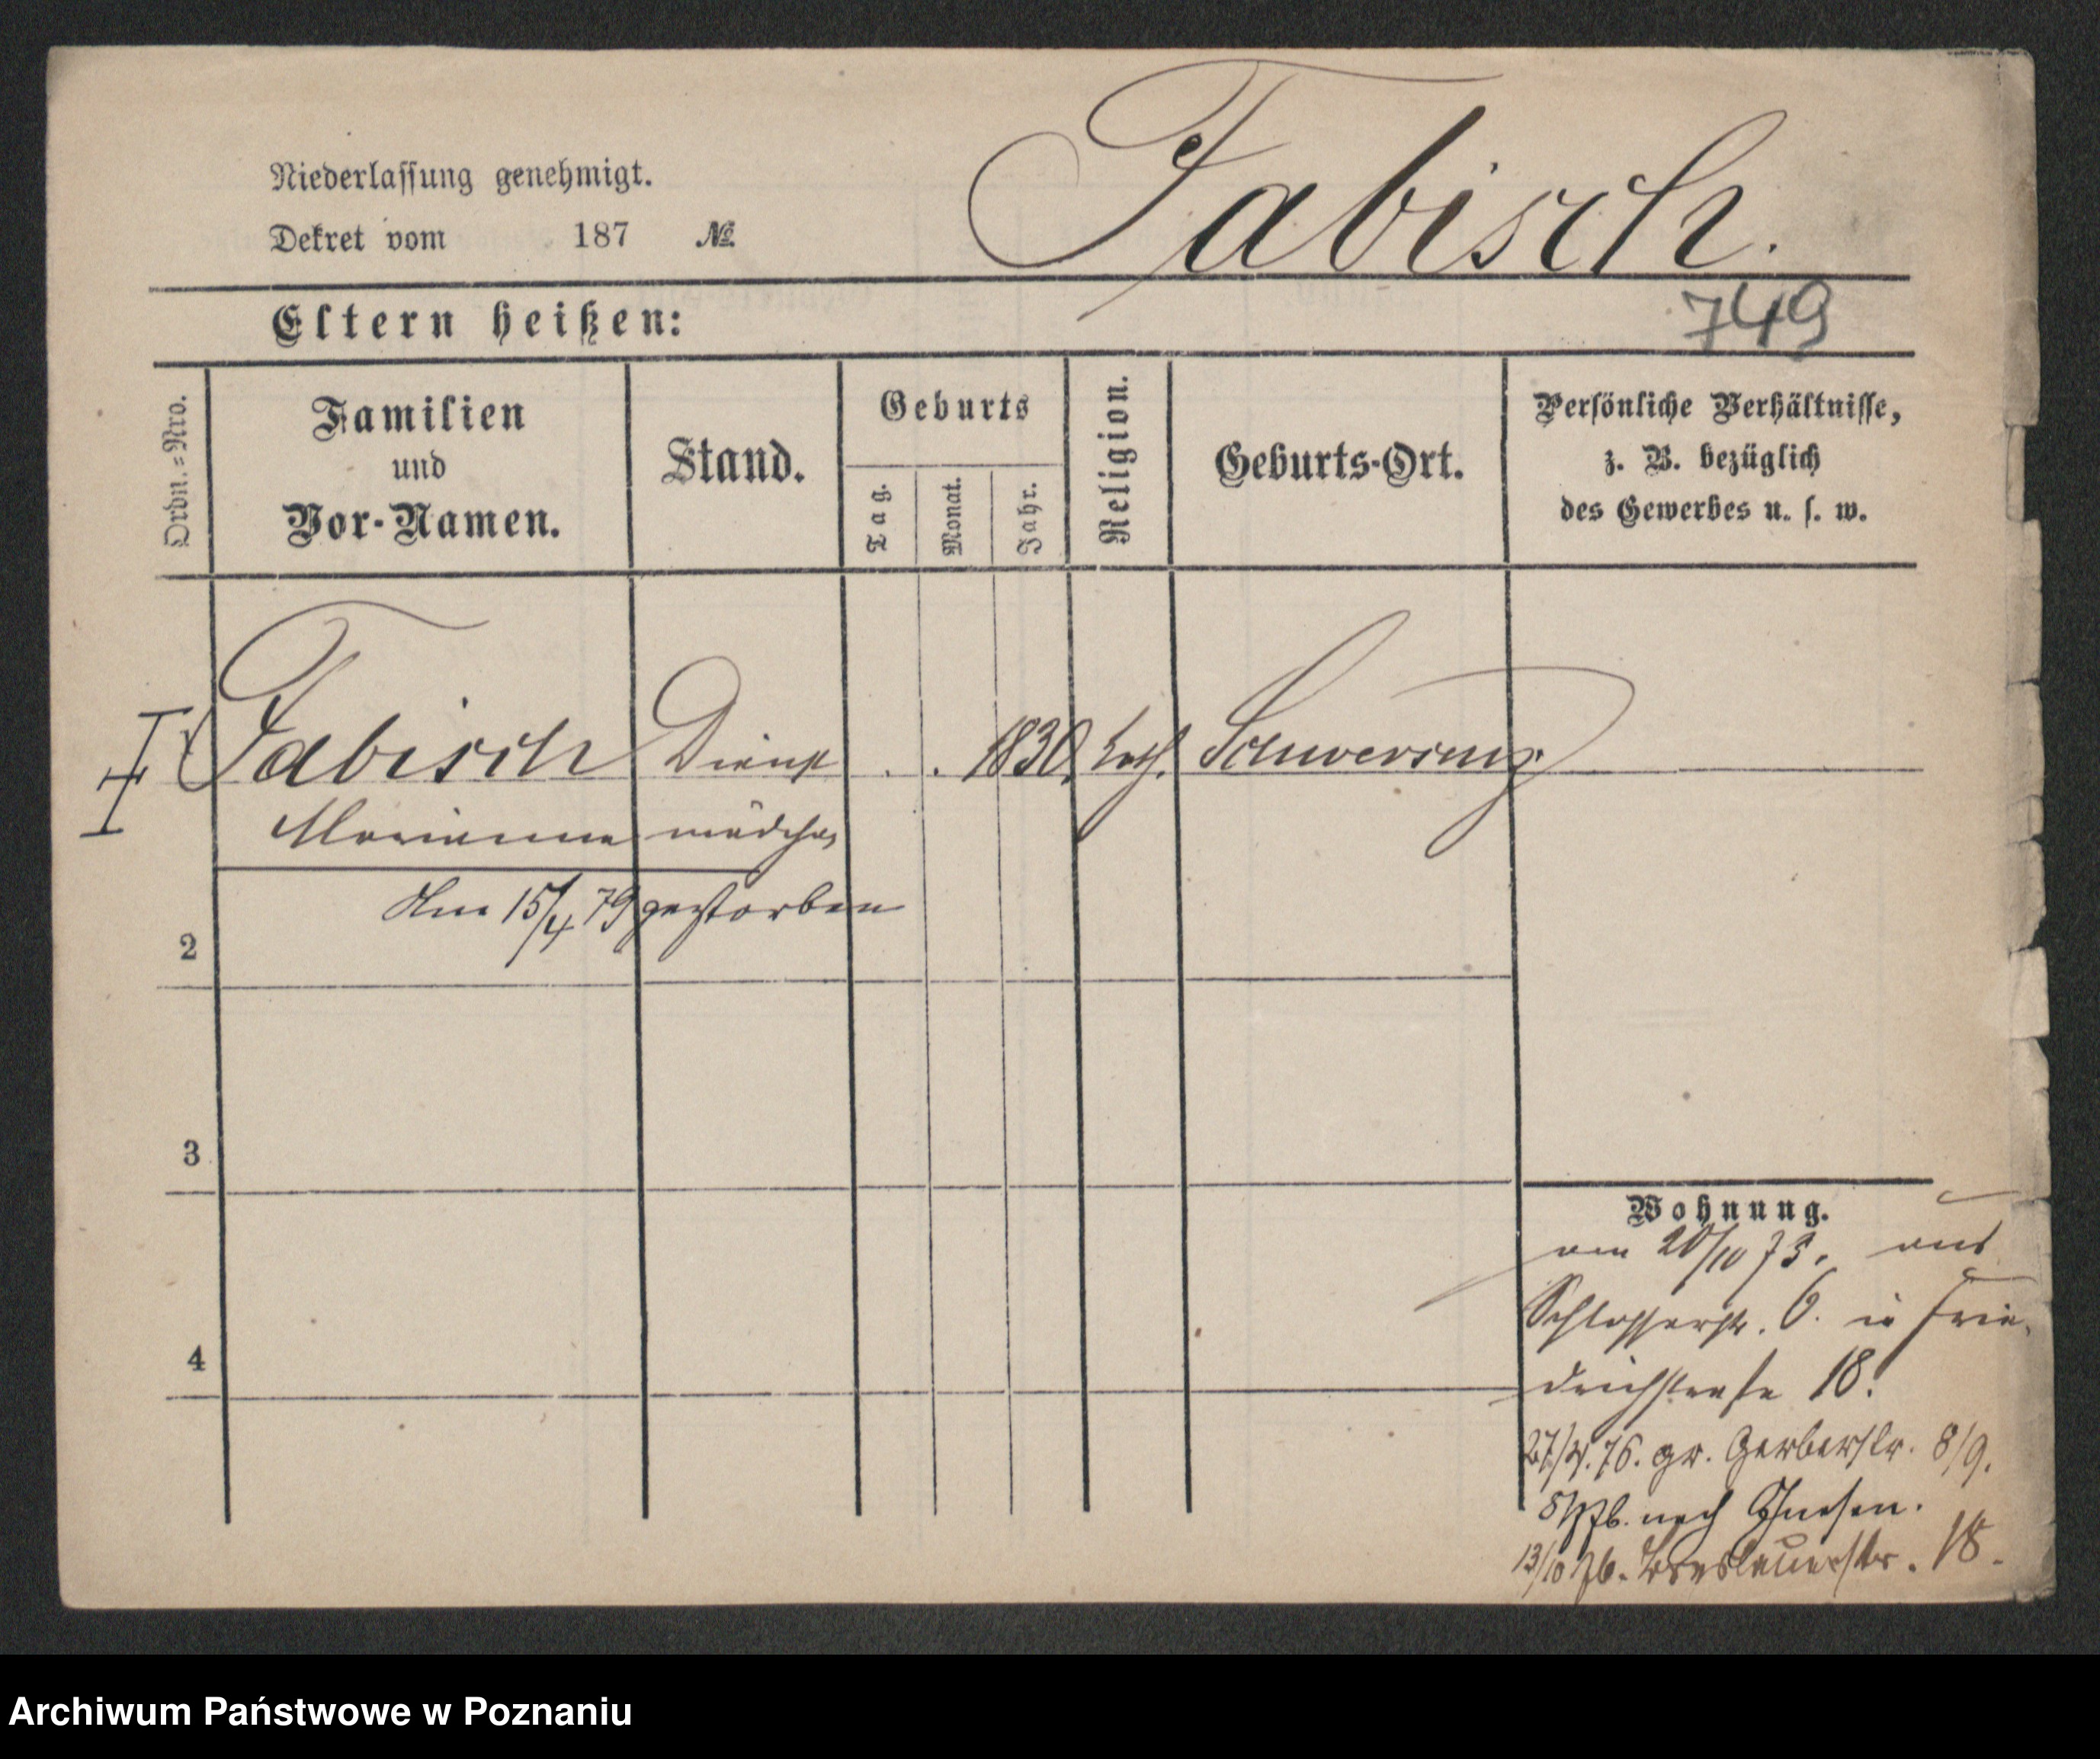 Niederlassung genehmigt.
Dekret vom 187 №
Fabisch.
Eltern heißen:
749
Ordn.=Nro.
Familien
und
Vor-Namen.
Stand.
Geburts
Tag.
Monat.
Jahr.
Religion.
Geburts-Ort.
Persönliche Verhältnisse,
z. B. bezüglich
des Gewerbes u. s. w.
Fabisch Dienst . . 1830. kath. Schwersenz.
Marianna mädchen
Am 15/4 79 gestorben
2
3
4
Wohnung.
am 20/10 73. aus
Schlosserstr. 6. in Frie-
drichstraße 18.
27/4.76. gr. Gerberstr. 8/9.
nach Gnesen.
13/10 76. Breslauerstr. 18.
Archiwum Państwowe w Poznaniu